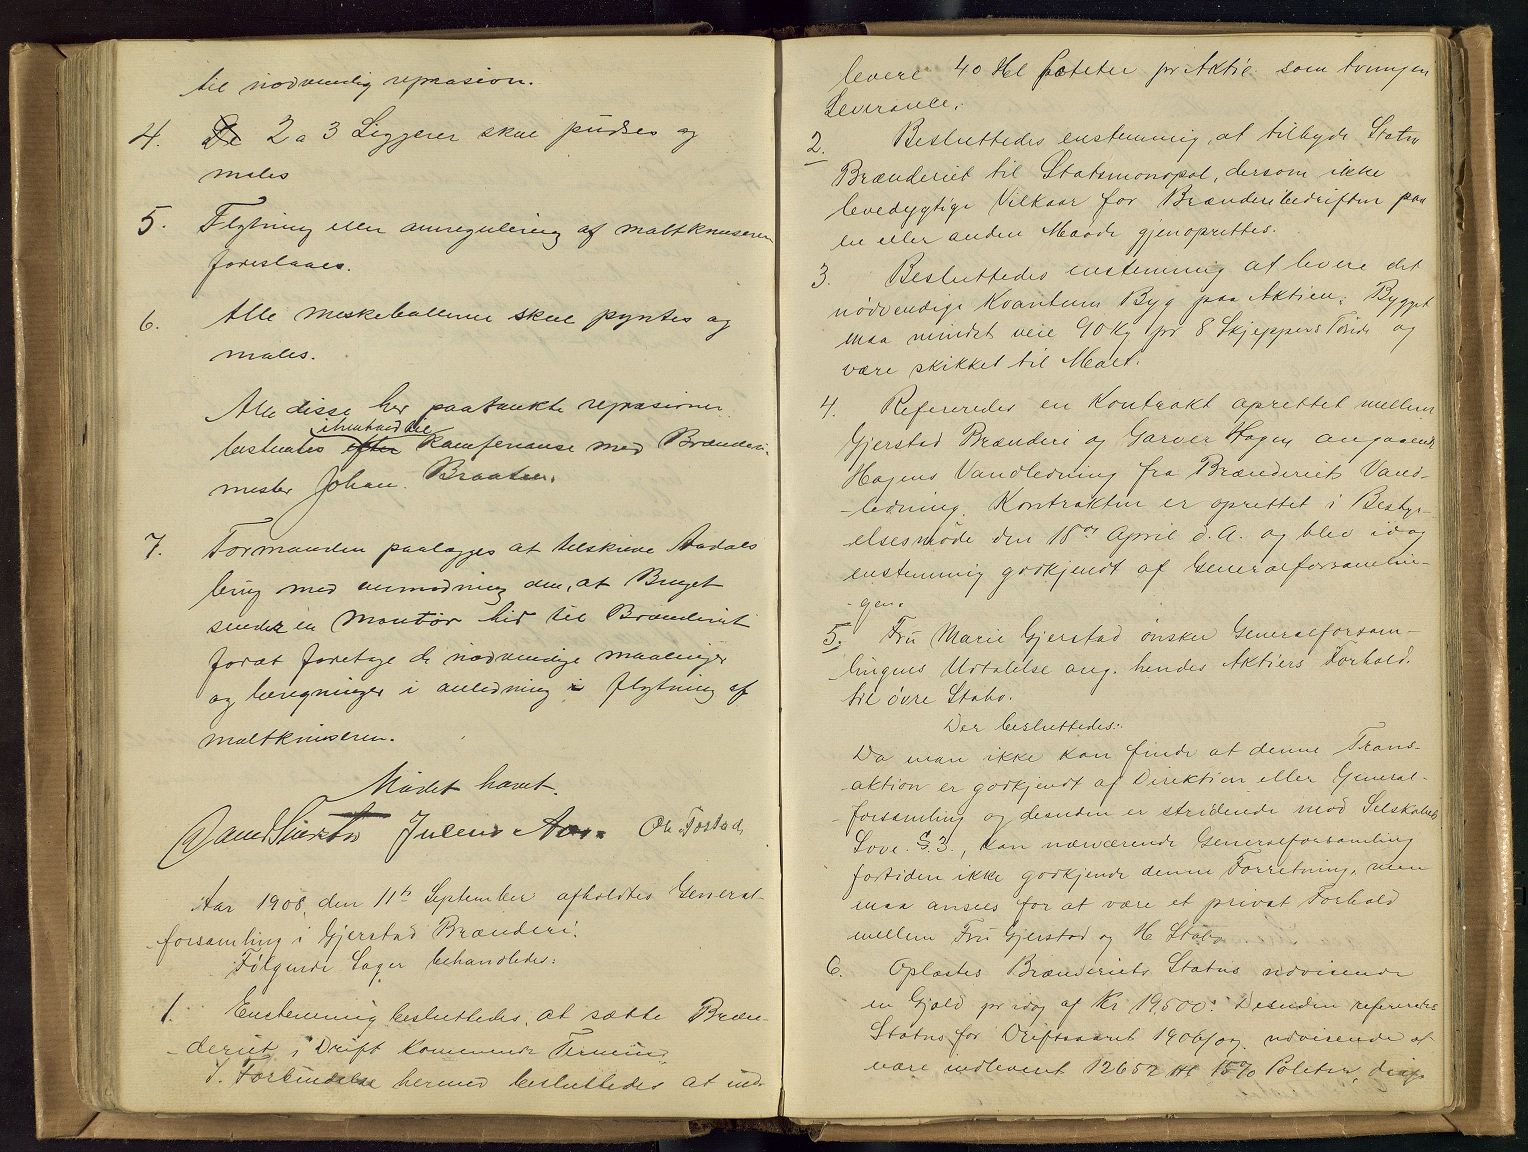 til nødvendig reprasion.
4. 2 a 3 Liggerer skal pudses og
males
5. Flytning eller anregulering af maltknuseren
foreslaaes.
6. Alle meskeballerne skal pyntes og
males.
Alle disse her paatænkte reprasioner
ihenhold til
besluttes efter konferanse med Brænderi-
mester Johan Braaten.
7. Formanden paalægges at tilskrive Aadals
brug med anmodning om, at Bruget
sender en montør hid til Brænderiet
forat foretage de nødvendige maalinger
og beregninger i anledning flytning af
maltknuseren.
Mødet hævet.
Julius Aas. Ole Fostad
Aar 1908, den 11te September afholdtes General-
forsamling i Gjerstad Brænderi.
Følgende Sager behandledes:
1. Enstemmig besluttedes, at sætte Bræn-
deriet i Drift kommende Termin.
I Forbindelse hermed besluttedes at ind-
levere 40 Hl poteter pr Aktie som tvungen
Leverance.
2. Besluttedes enstemmig, at tilbyde Staten
Brænderiet til Statsmonopol, dersom ikke
levedygtige Vilkaar for Brænderibedriften paa
en eller anden Maade gjenoprettes.
3. Besluttedes enstemmig at levere det
nødvendige Kvantum Byg paa Aktien. Bygget
maa mindst veie 90 Kg pr 8 Skjeppers Tønde og
være skikket til Malt.
4. Refereredes en Kontrakt oprettet mellem
Gjerstad Brænderi og Garver Hagen angaaende
Hagens Vandledning fra Brænderiets Vand-
-ledning. Kontrakten er oprettet i Besty-
elsesmøde den 18de April d.A. og blev idag
enstemmig godkjendt af Generalforsamlin-
-gen.
5. Fru Marie Gjerstad ønsker Generalforsam-
lingens Udtalelse ang. hendes Aktiers Forhold
til øvre Stabo.
Der besluttedes:
Da man ikke kan finde at denne Trans-
aktion er godkjendt af Direktion eller General-
-forsamling og desuden er stridende mod Selskabets
Love §.3., kan nærværende Generalforsamling
fortiden ikke godkjende denne Forretning, men
maa ansees for at være et privat Forhold
mellem Fru Gjerstad og H Stabo
6. Oplæstes Brænderiets Status udvisende
en Gjæld pr idag af Kr 19,500. Desuden refereredes
Status for Driftsaaret 190 udvisende at
være indlevert 12657 Hl 15% Poteter,